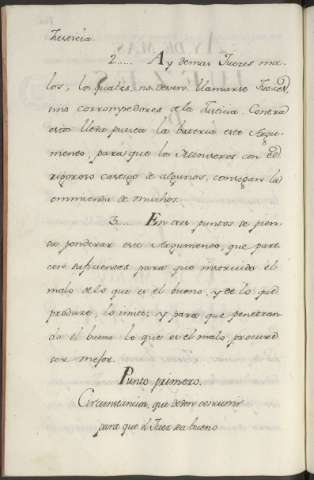 herencia
2..... Ay demas Jueces ma-
los, los quales, no deven llamarse Jueces,
sino corrompedores de la Justicia. Contra
esto lleva puesta la bateria este Argu-
mento, para que los Consiveros con el
rigoroso castigo de algunos, consigan la
enmienda de muchos.
3.... En tres puntos se pien-
sa ponderar este Argumento, que pare-
cen suficientes para que instruido el
malo de lo que es el bueno, y de lo que
produze, lo imite; y para que penetran-
do el bueno lo que es el malo, procure
ser mejor.
Punto primero.
Circunstancias, que deben concurrir
para que el Juez sea bueno